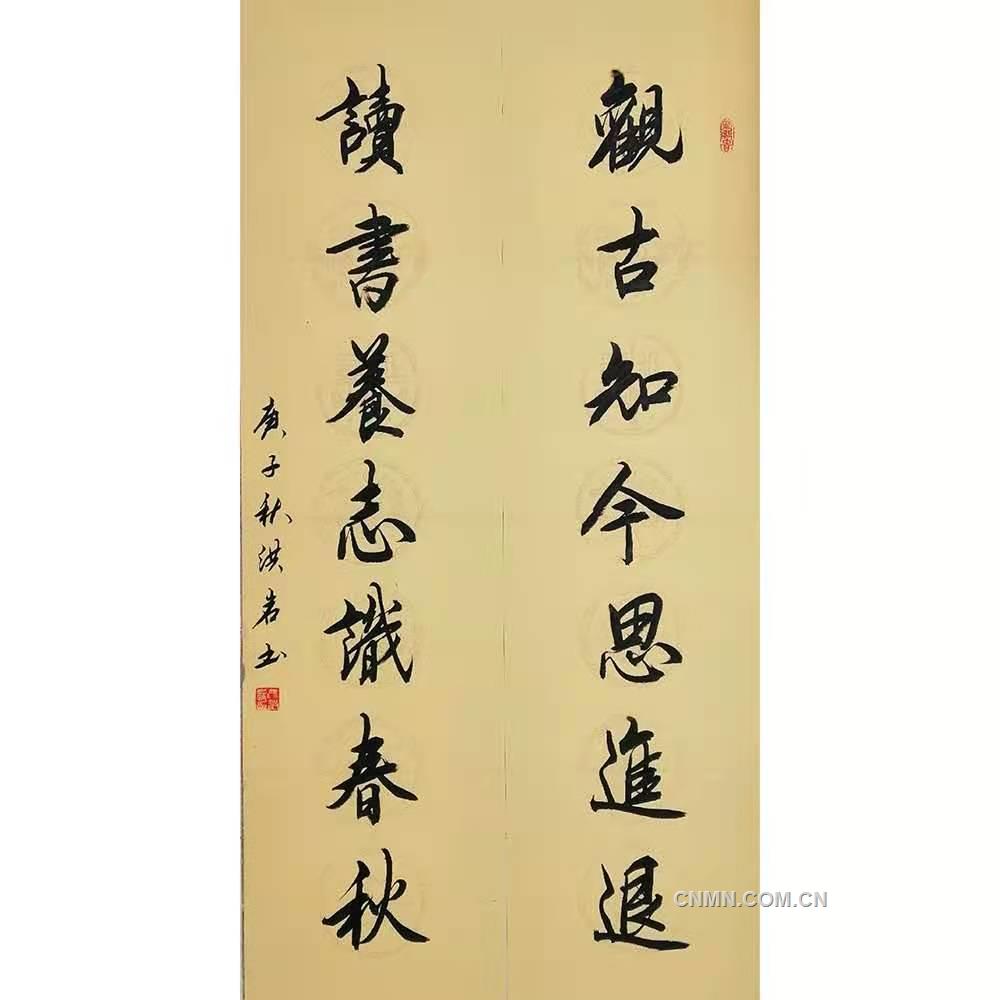 觀古知今思進退
讀書養志識春秋
庚子秋洪岩书
CNMN.COM.CN